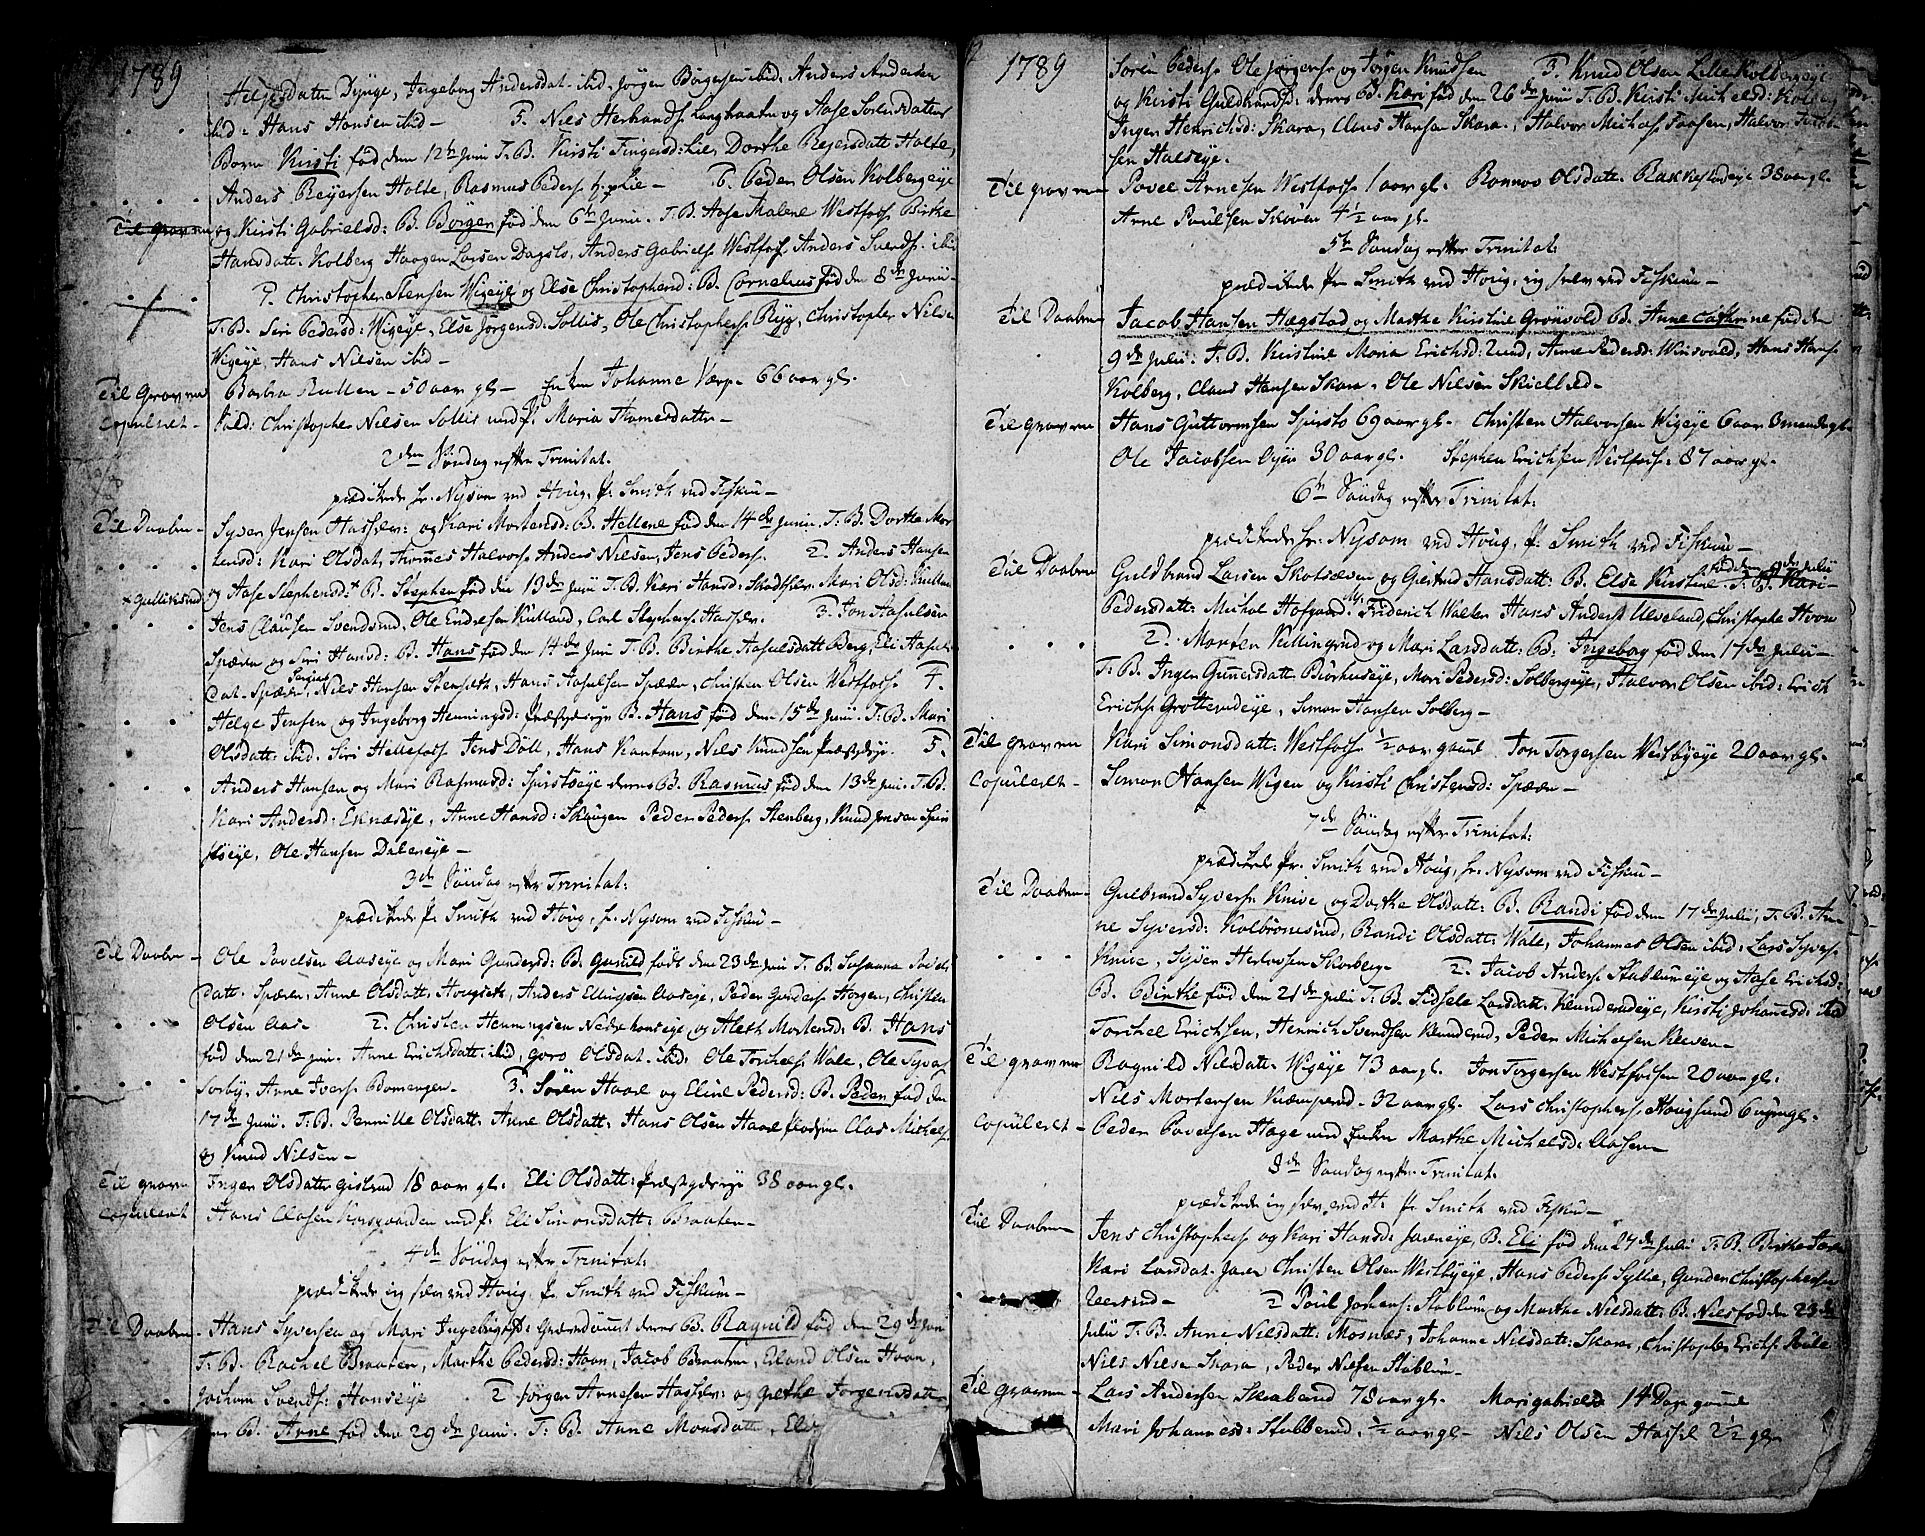 1789
Helgesdatter Dynge, Ingeborg Andersdat. ibid. Jørgen Børgersen ibid. Anders Andersen
ibid: Hans Hansen ibid – 5. Niels Herbrands. Langbraaten og Aase Sørensdatter
Børn Kirsti fød den 12te Juni T. B. Kirsti Fingersd: Lie, Dorthe Reyersdatt Holte,
Anders Reyersen Holte, Rasmus Peders. Lie – 6. Peder Olsen Kolbergeye
Til graven og Kirsti Gabrielsd: B. Børgen fød den 6te Junii. T. B. Aase Malene Westfoss. Birthe
Hansdatt. Kolberg Haagen Larsen Dagslo, Anders Gabriels. Westfoss. Anders Svends: ibid
7. Christopher Stensen Wigeye og Else Christophersd: B. Cornelius fød den 8de Junii –
T. B. Siri Pedersd: Wigeye, Else Jørgensd: Sollis, Ole Christophers. Ryg, Christopher Nilsen
Wigeye, Hans Nilsen ibid –
Til Graven Barbra Rullen – 50 aar gl – Enken Johanne Værp. 66 aar gl.
Copuleret Sold: Christopher Nilsen Sollis med p. Maria Hamersdatter –
2den Søndag efter Trinitat.
prædikede hr. Nysom ved Houg, p. Smith ved Fiskum –
Til Daaben – Syver Jensen Hasselv: og Kari Mortensd: B. Hellene fød den 14de Junii T. B. Dorthe Mor
tensd: Kari Olsdat, Thomes Halvors. Anders Nilsen, Jens Peders. 2. Anders Hansen
+ Gulliksrud og Aase Stephensd: + B. Stephen fød den 13de Junii T. B. Kari Hansd: Skodselv. Mari Olsd: Kulland
Jens Clausen Svendsrud, Ole Endresen Kulland, Carl Stephens. Hasselv. 3. Jon Aasulsen
Spæren og Siri Hansd: B. Hans fød den 14de Juni T. B. Birthe Aasulsdatt Berg, Eli Aasuls
dat. Spæren, Nils Hansen Stenseth, Hans Aasulsen Spæren, Christen Olsen Westfoss. 4.
Helge Jensen og Ingeborg Henningsd: B. Hans fød den 15de Junii. T. B. Mari
Olsdatt: ibid. Siri Hellefoss Jens Döll, Hans Kantom, Nils Knudsen 5.
Anders Hansen og Mari Rasmusd: Spirstøeye deres B. Rasmus fød den 13de Juni. T. B.
Kari Andersd: Eknæseye, Anne Hansd: Skougen Peder Peders. Stenberg, Knud Jensen Spir
støeye, Ole Hansen Daleneye –
3de Søndag efter Trinitat:
prædikede p. Smith ved Houg, hr. Nysom ved Fiskum –
Til Daaben – Ole Povelsen Aaseye og Mari Gundersd: B. Gunild født den 23de Juni T. B. Susanna Povels
datt. Spæren, Anne Olsdatt. Hougseth, Anders Ellingsen Aaseye, Peder Gunders. Horgen, Christen
Olsen Aas – 2. Christen Henningsen Nedre honseye og Aleth Mortensd: B. Hans
fød den 21de Juni. Anne Erichsdatt: ibid, Goro Olsdat. ibid: Ole Torchels. Wale, Ole Syvers.
Sorby, Arne Ivers. Bomengen – 3. Søren Haarl og Eline Pedersd: B. Peder fød den
17de Junii. T. B. Pernille Olsdatt. Anne Olsdatt. Hans Olsen Haarl Clas Michels.
og Knud Nilsen –
Til graven Inger Olsdatter Gistrud 18 aar gl. Eli Olsdatt: 38 aar gl.
Copuleret Hans Clasen Korsgaarden med p. Eli Simonsdatt: Braaten –
4de Søndag efter Trinitat:
prædikede jeg selv ved Houg, p. Smith ved Fiskum –
Til Daaben. Hans Syversen og Mari Ingebrigtsd: deres B. Ragnild fød den 29de Juni
T. B. Rachel Braaten, Marthe Pedersd: Hoen, Jacob Braaten, Erland Olsen Hoen,
Jochum Svends: Honseye 2 Jørgen Arnesen Hasselv: og Grethe Jørgensdatter
B. Arne fød den 29de Juni. T. B. Anne Monsdatt,
1789
Søren Peders. Ole Jørgens. og Jørgen Knudsen 3. Knud Olsen Lille Kolbergeye
og Kirsti Guldbrandsd: deres B. Kari fød den 26de Juni T. B. Kirsti Michelsd: Kolberg
Inger Henrichsd: Skara, Claus Hansen Skara, Halvor Michels. Foosen, Halvor
sen Halseye.
Til graven Povel Arnesen Westfoss. 1 aar gl. Ronnov Olsdatt. Rakkestadeye 38 aar gl.
Arne Poulsen Skoven 4½ aar gl.
5te Søndag efter Trinitat:
prædikede p. Smith ved Houg, jeg selv ved Fiskum –
Til Daaben Jacob Hansen Hægstad og Marthe Kirstine Grønvold B. Anne Cathrine fød den
9de Julii: T. B. Kirstine Maria Erichsd: Lund, Anne Pedersd: Winsvold, Hans Hans.
Kolberg, Claus Hansen Skara. Ole Nilsen Skiellbred –
Til graven Hans Guttormsen Spirsto 69 aar gl. Christen Halvorsen Wigeye 6 aar 3 maaneder gl.
Ole Jacobsen Öyen 30 aar gl. Stephen Erichsen Westfoss: 87 aar gl.
6te Søndag efter Trinitat:
prædikede hr. Nysom ved Houg, p. Smith ved Fiskum –
Til Daaben Guldbrand Larsen Skotselven og Giertrud Hansdatt: B. Else Kirstine fød den 9de Julii T. B. Kari
Pedersdatt: Michel Hofgaard. Friderich Walter Hans Anders. Ulveland, Christopher Hoen
2. Morten Killingrud og Mari Larsdatt: B. Ingeborg fød den 17de Julii –
T. B. Inger Gunersdatt Biørhuseye, Mari Pedersd: Solbergeye, Halvor Olsen ibid: Erich
Erichs. Grotterudeye, Simon Hansen Solberg –
Til graven Kari Simonsdatt. Westfoss. ½ aar gamel Jon Torgersen Westbyeye 20 aar gl.
Copuleret – Simon Hansen Wigen og Kirsti Christensd: Spæren –
7de Søndag efter Trinitat:
prædikede p. Smith ved Houg, hr. Nysom ved Fiskum –
Til Daaben – Gulbrand Syvers. Knive og Dorthe Olsdatt: B. Randi fød den 17de Julii, T. B. An
ne Syversd: Kolbrönsrud, Randi Olsdatt: Wale, Johannes Olsen ibid: Lars Syvers.
Knive, Syver Herlovsen Skorberg – 2. Jacob Anders. Stublumeye og Aase Erichsd:
B. Birthe fød den 21de Julii T. B. Sidsele Larsdatt. Klunderudeye, Kirsti Johanesd: ibid
Torchel Erichsen, Henrich Svendsen Klunderud, Peder Michelsen Kleven –
Til graven Ragnild Nilsdatt. Wigeye 73 aar gl. Jon Torgersen Westfossen 20 aar gl.
Nils Mortensen Kiemperud – 32 aar gl. Lars Christophers. Hougsund 6 uger gl.
Copuleret – Peder Povelsen Hage med Enken Marthe Michelsd: Aasen –
8de Søndag efter Trinitat.
prædikede jeg selv ved H. p. Smith ved Fisku –
Til Daaben – Jens Christophers. og Kari Hansd: Jareneye, B. Eli fød den 27de Julii T. B. Birthe Jaren
Kari Larsdat. Jaren Christen Olsen Westbyeye, Hans Peders. Sylte, Gunder Christophersen
Ulevrud – 2 Poul Johans: Stablum og Marthe Nilsdatt: B. Niels fød den 23de
Julii T. B. Anne Nilsdatt: Mosnes, Johanne Nilsdatt: Skara, Christopher Erichs:
Nils Nilsen Skara, Peder Nilsen Stablum –
Til graven – Lars Andersen Skabrud 78 aar gl. Mari Gabrielsd 14 Dage gamel
Mari Johannesd: Stubberud, ½ aar gl – Nils Olsen Hassel 2½ gl.